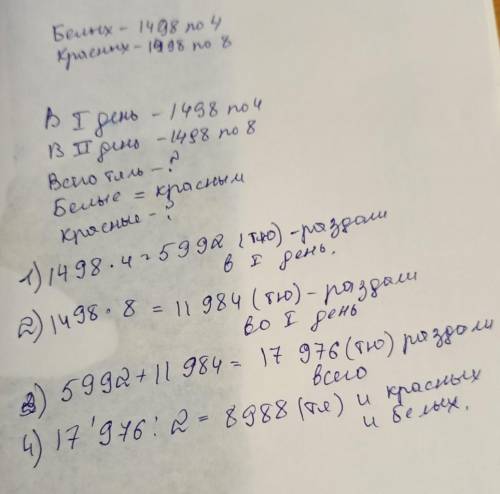 Белых - 1498 по 4
Красных - 1998 по 8
В I день - 1498 по 4
В II день - 1498 по 8
Всего тюль - ?
Белые = красным
Красные - ?
1) 1498 · 4 = 5992 (тю) - раздали
в I день.
2) 1498 · 8 = 11 984 (тю) - раздали
во I день
3) 5992 + 11 984 = 17 976 (тю) раздали
всего
4) 17 976 : 2 = 8988 (тю) и красных
и белых.